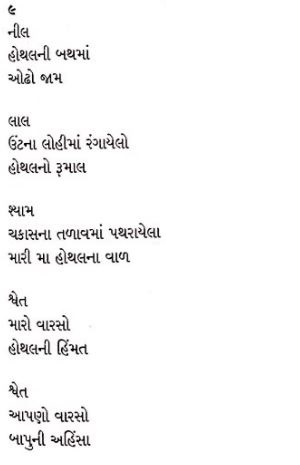 ૯
નીલ
હોથલની બથમાં
ઓઢો જામ
લાલ
ઉંટના લોહીમાં રંગાયેલો
હોથલનો રૂમાલ
શ્યામ
ચકાસના તળાવમાં પથરાયેલા
મારી મા હોથલના વાળ
શ્વેત
મારો વારસો
હોથલની હિંમત
શ્વેત
આપણો વારસો
બાપુની અહિંસા